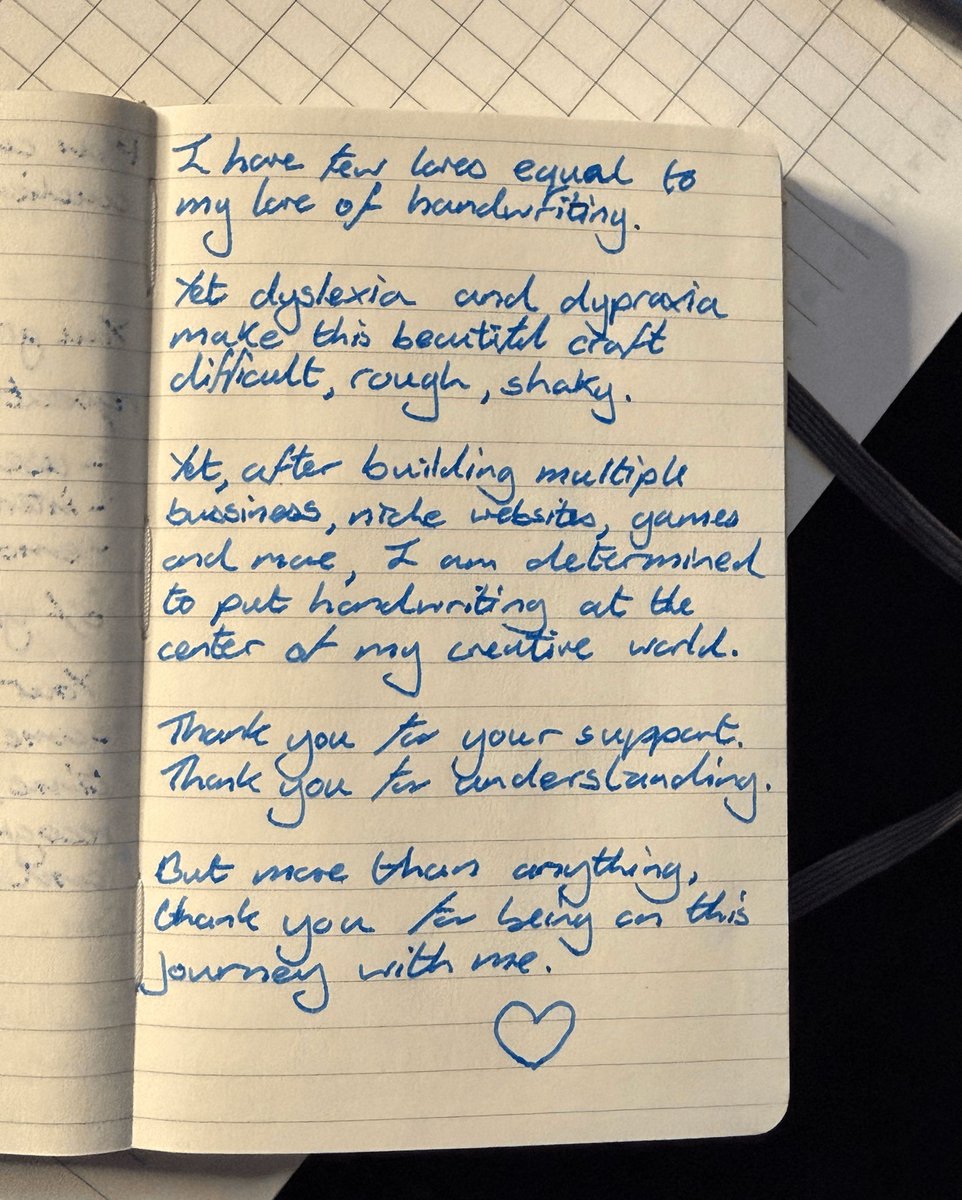 I have few loves equal to
my love of handwriting.
Yet dyslexia and dypraxia
make this beautiful craft
difficult, rough, shaky.
Yet, after building multiple
bussiness, niche websites, games
and more, I am determined
to put handwriting at the
center of my creative world.
Thank you for your support.
Thank you for understanding.
But more than anything,
thank you for being on this
journey with me.